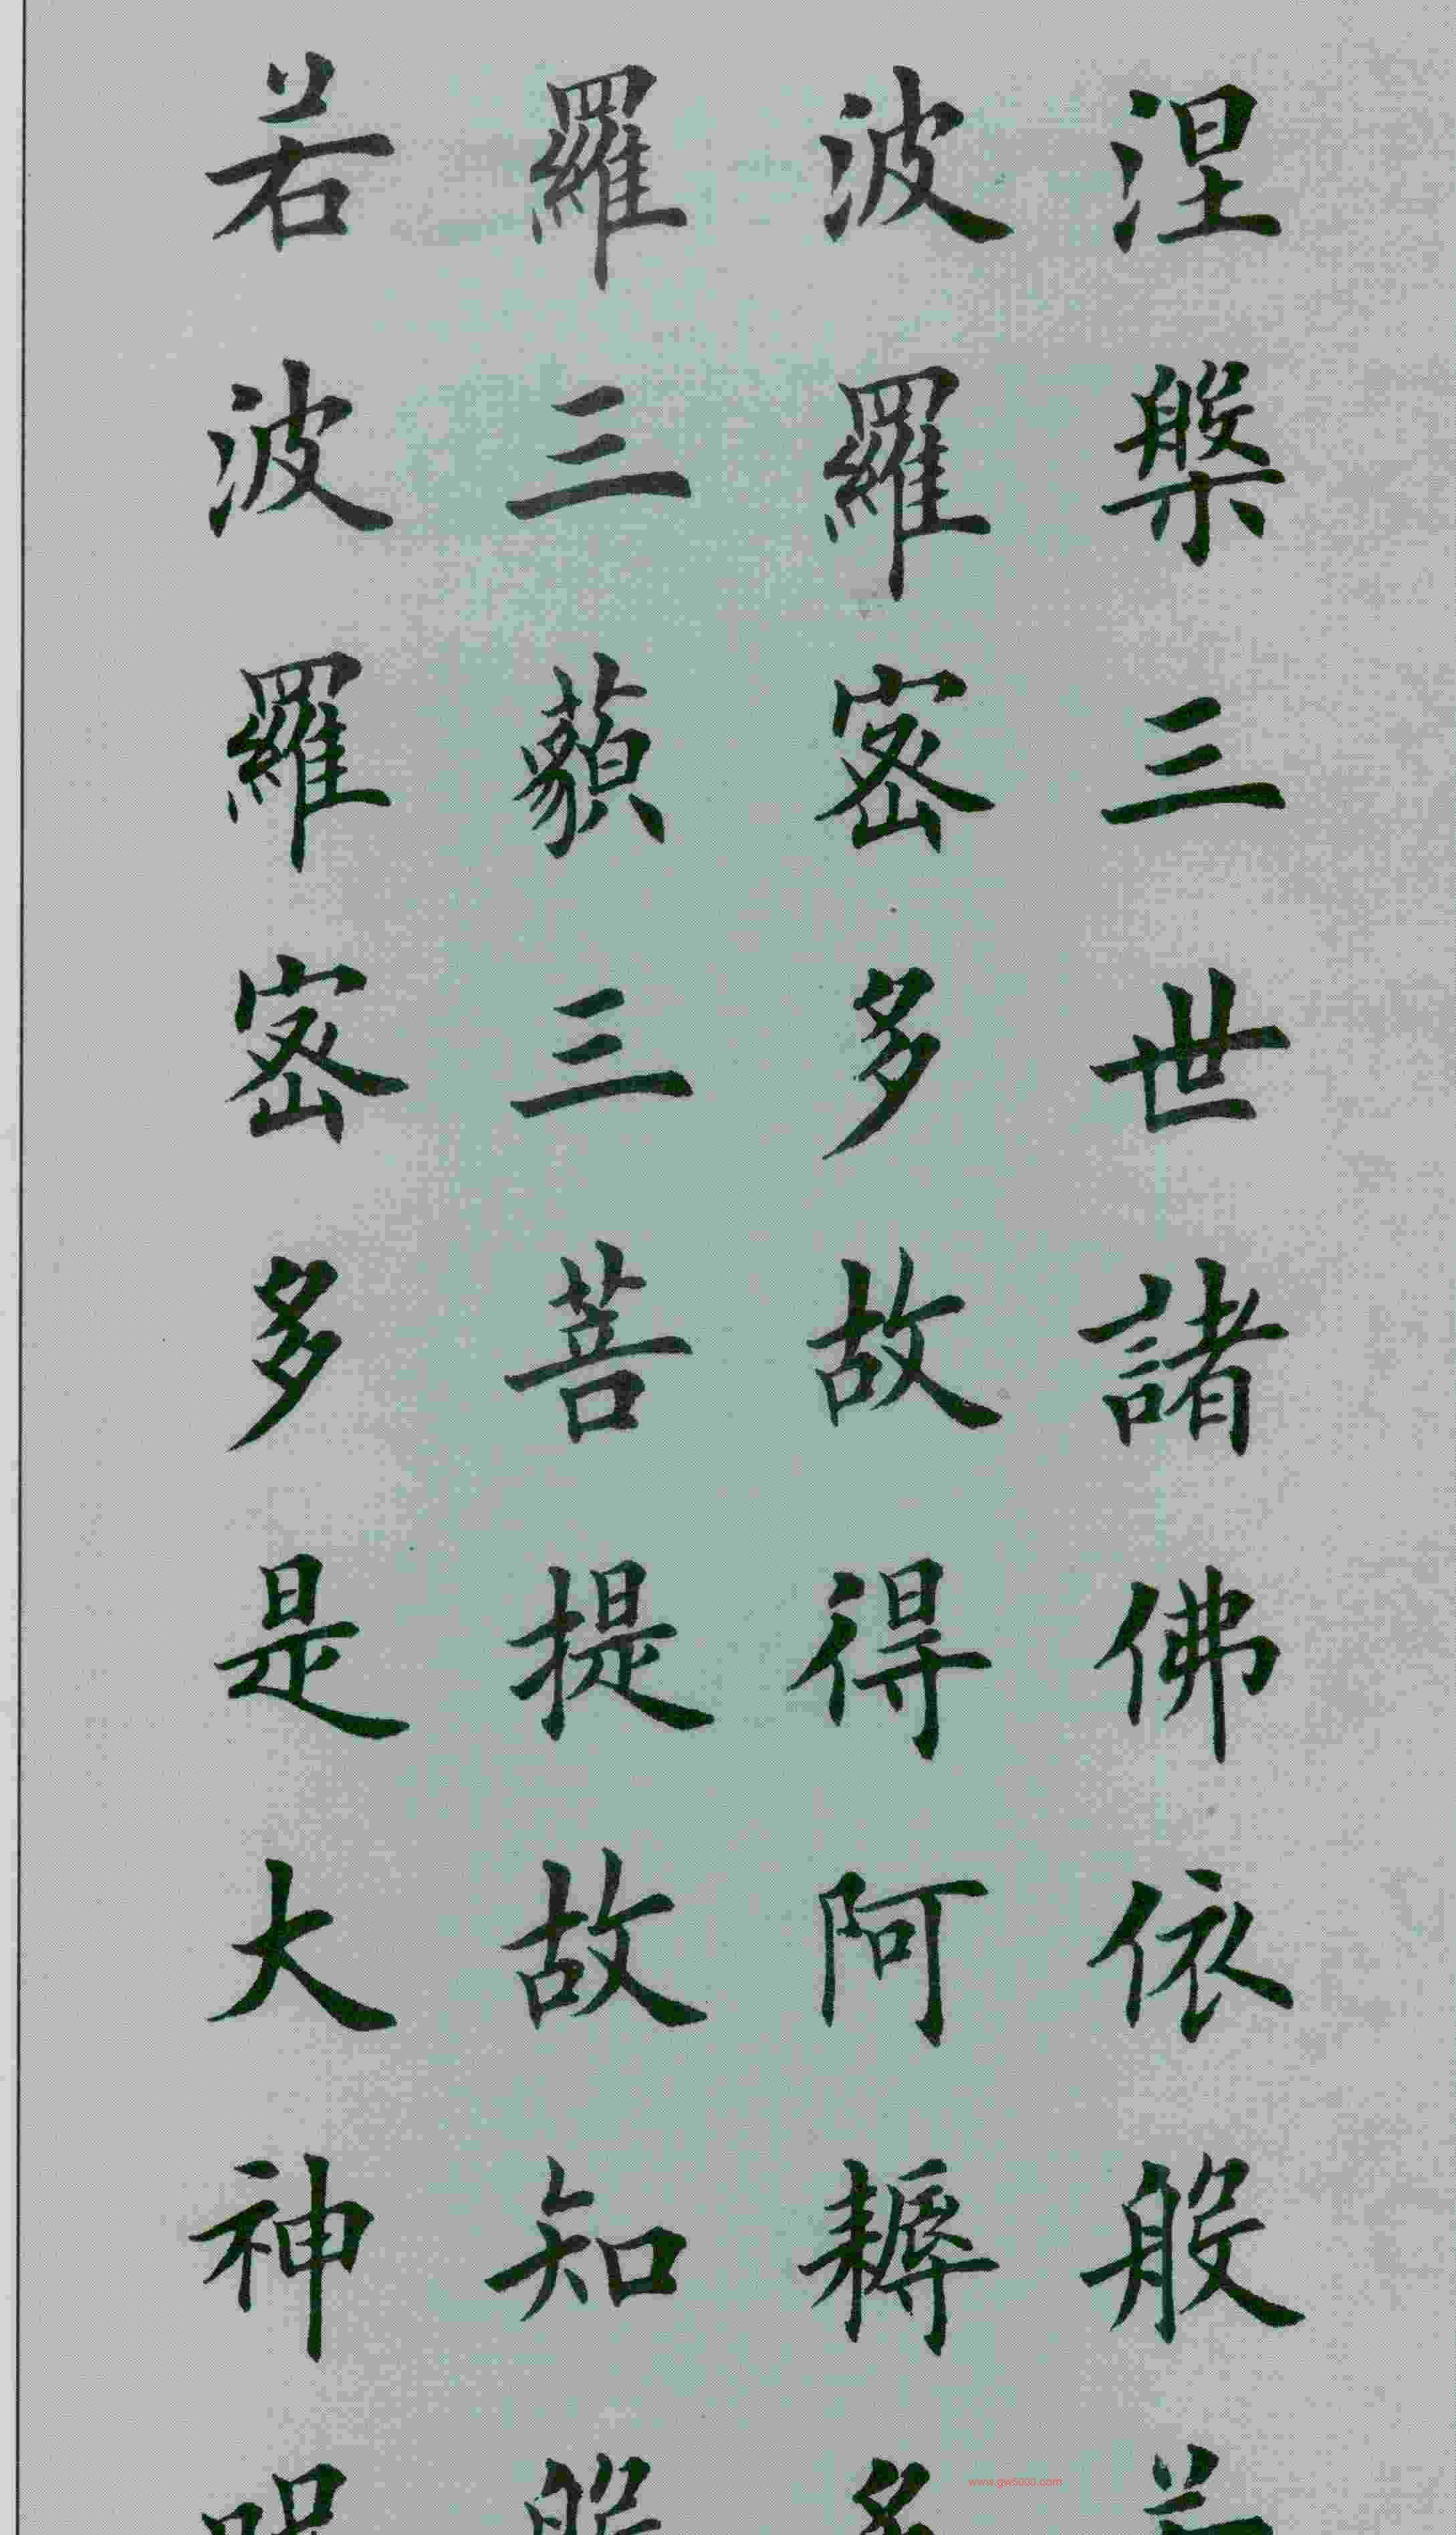 涅槃三世諸佛依般若
波羅密多故得阿耨多
羅三藐三菩提故知般
若波羅密多是大神咒
www.gw5000.com